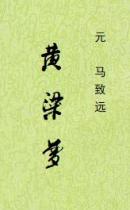 元 马致远
黄粱梦